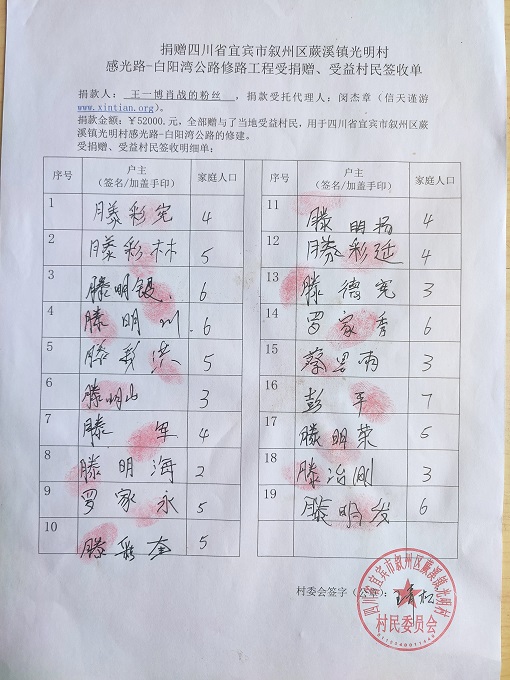 捐赠四川省宜宾市叙州区蕨溪镇光明村
感光路-白阳湾公路修路工程受捐赠、受益村民签收单
捐款人: 王一博肖战的粉丝 ,捐款受托代理人:闵杰章(信天谨游
www.xintian.org)。
捐款金额:¥52000.元,全部赠与了当地受益村民,用于四川省宜宾市叙州区蕨
溪镇光明村感光路-白阳湾公路的修建。
受捐赠、受益村民签收明细单:
序号 户主(签名/加盖手印) 家庭人口
1 滕彩宪 4
2 滕彩林 5
3 滕明银 6
4 滕明川 6
5 滕彩洪 5
6 滕明山 3
7 滕军 4
8 滕明海 2
9 罗家永 5
10 滕彩奎 5
序号 户主(签名/加盖手印) 家庭人口
11 滕明扬 4
12 滕彩延 4
13 滕德宪 3
14 罗家秀 6
15 蔡思雨 3
16 彭平 7
17 滕明荣 5
18 滕治刚 3
19 滕明发 6
村委会签字(公章):
四川省宜宾市叙州区蕨溪镇光明村
村民委员会